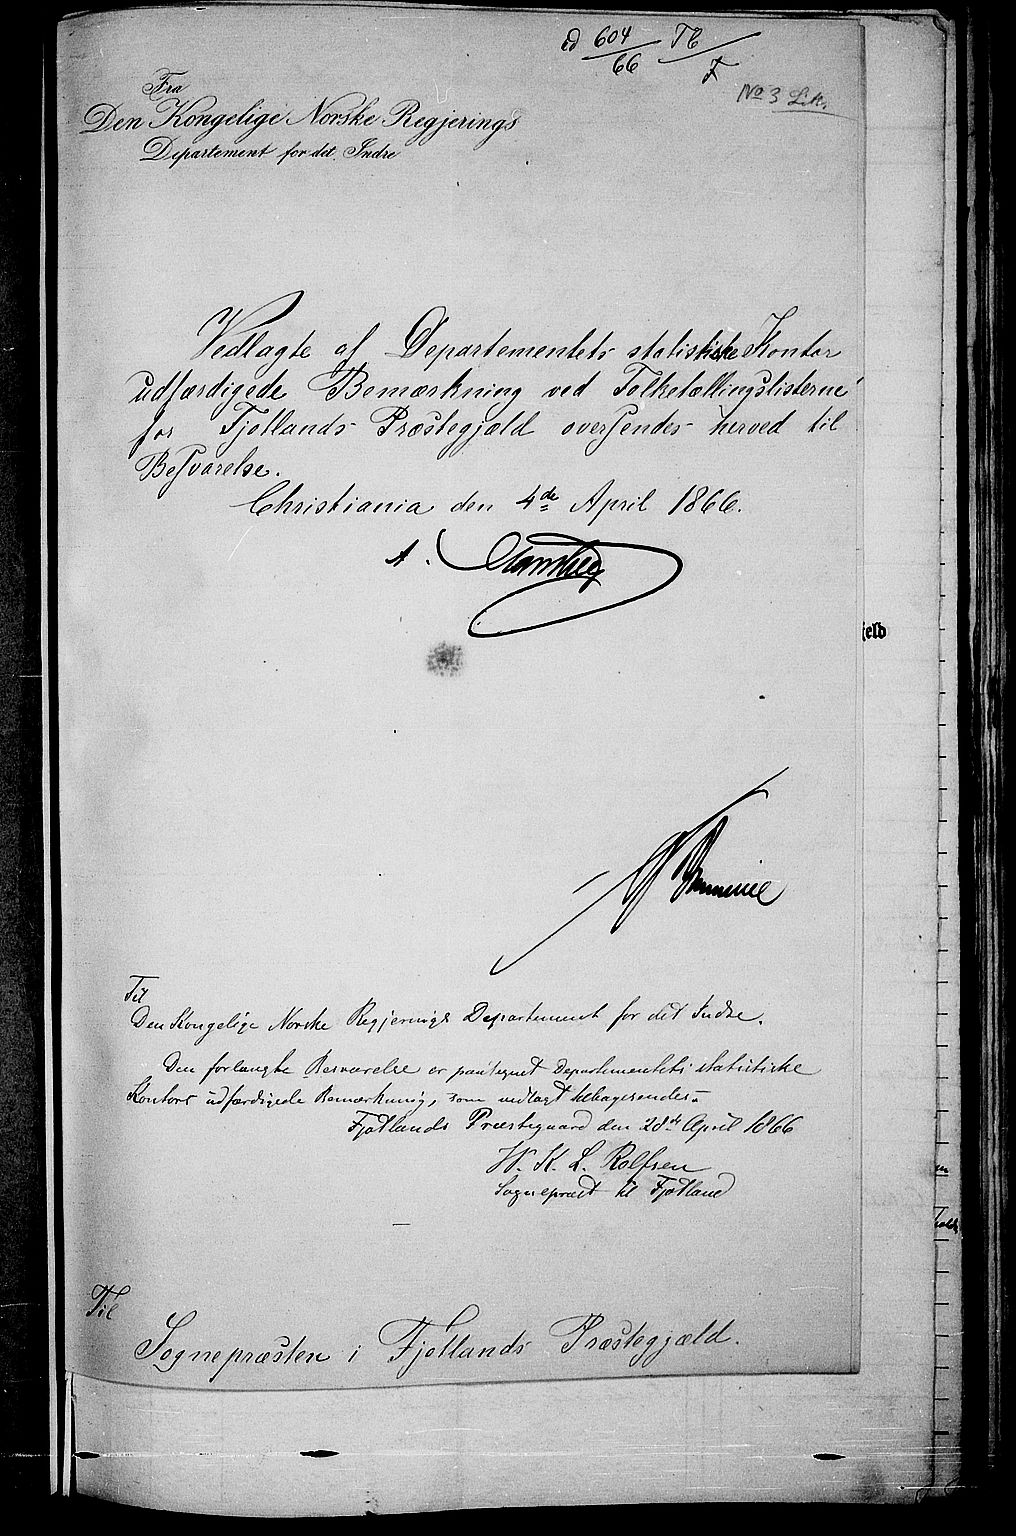 ad 604/66 Tb/F
No 3
Fra
Den Kongelige Norske Regjerings
Departement for det Indre
Vedlagte af Departementets statistiske Kontor
udfærdigede Bemærkning ved Folketællingslisterne
for Fjotlands Præstegjæld oversendes herved til
Besvarelse.
Christiania den 4de April 1866.
feld
Til
Den Kongelige Norske Regjerings Departement for det Indre.
Den forlangte Besvarelse er paategnet Departementets statistiske
Kontors udfærdigede Bemærkning, som vedlagt tilbagesendes.
Fjotlands Præstegaard den 28de April 1866
W. K. L. Rolfsen
Sognepræst til Fjotland
Til
Sognepræsten i Fjotlands Præstegjæld.